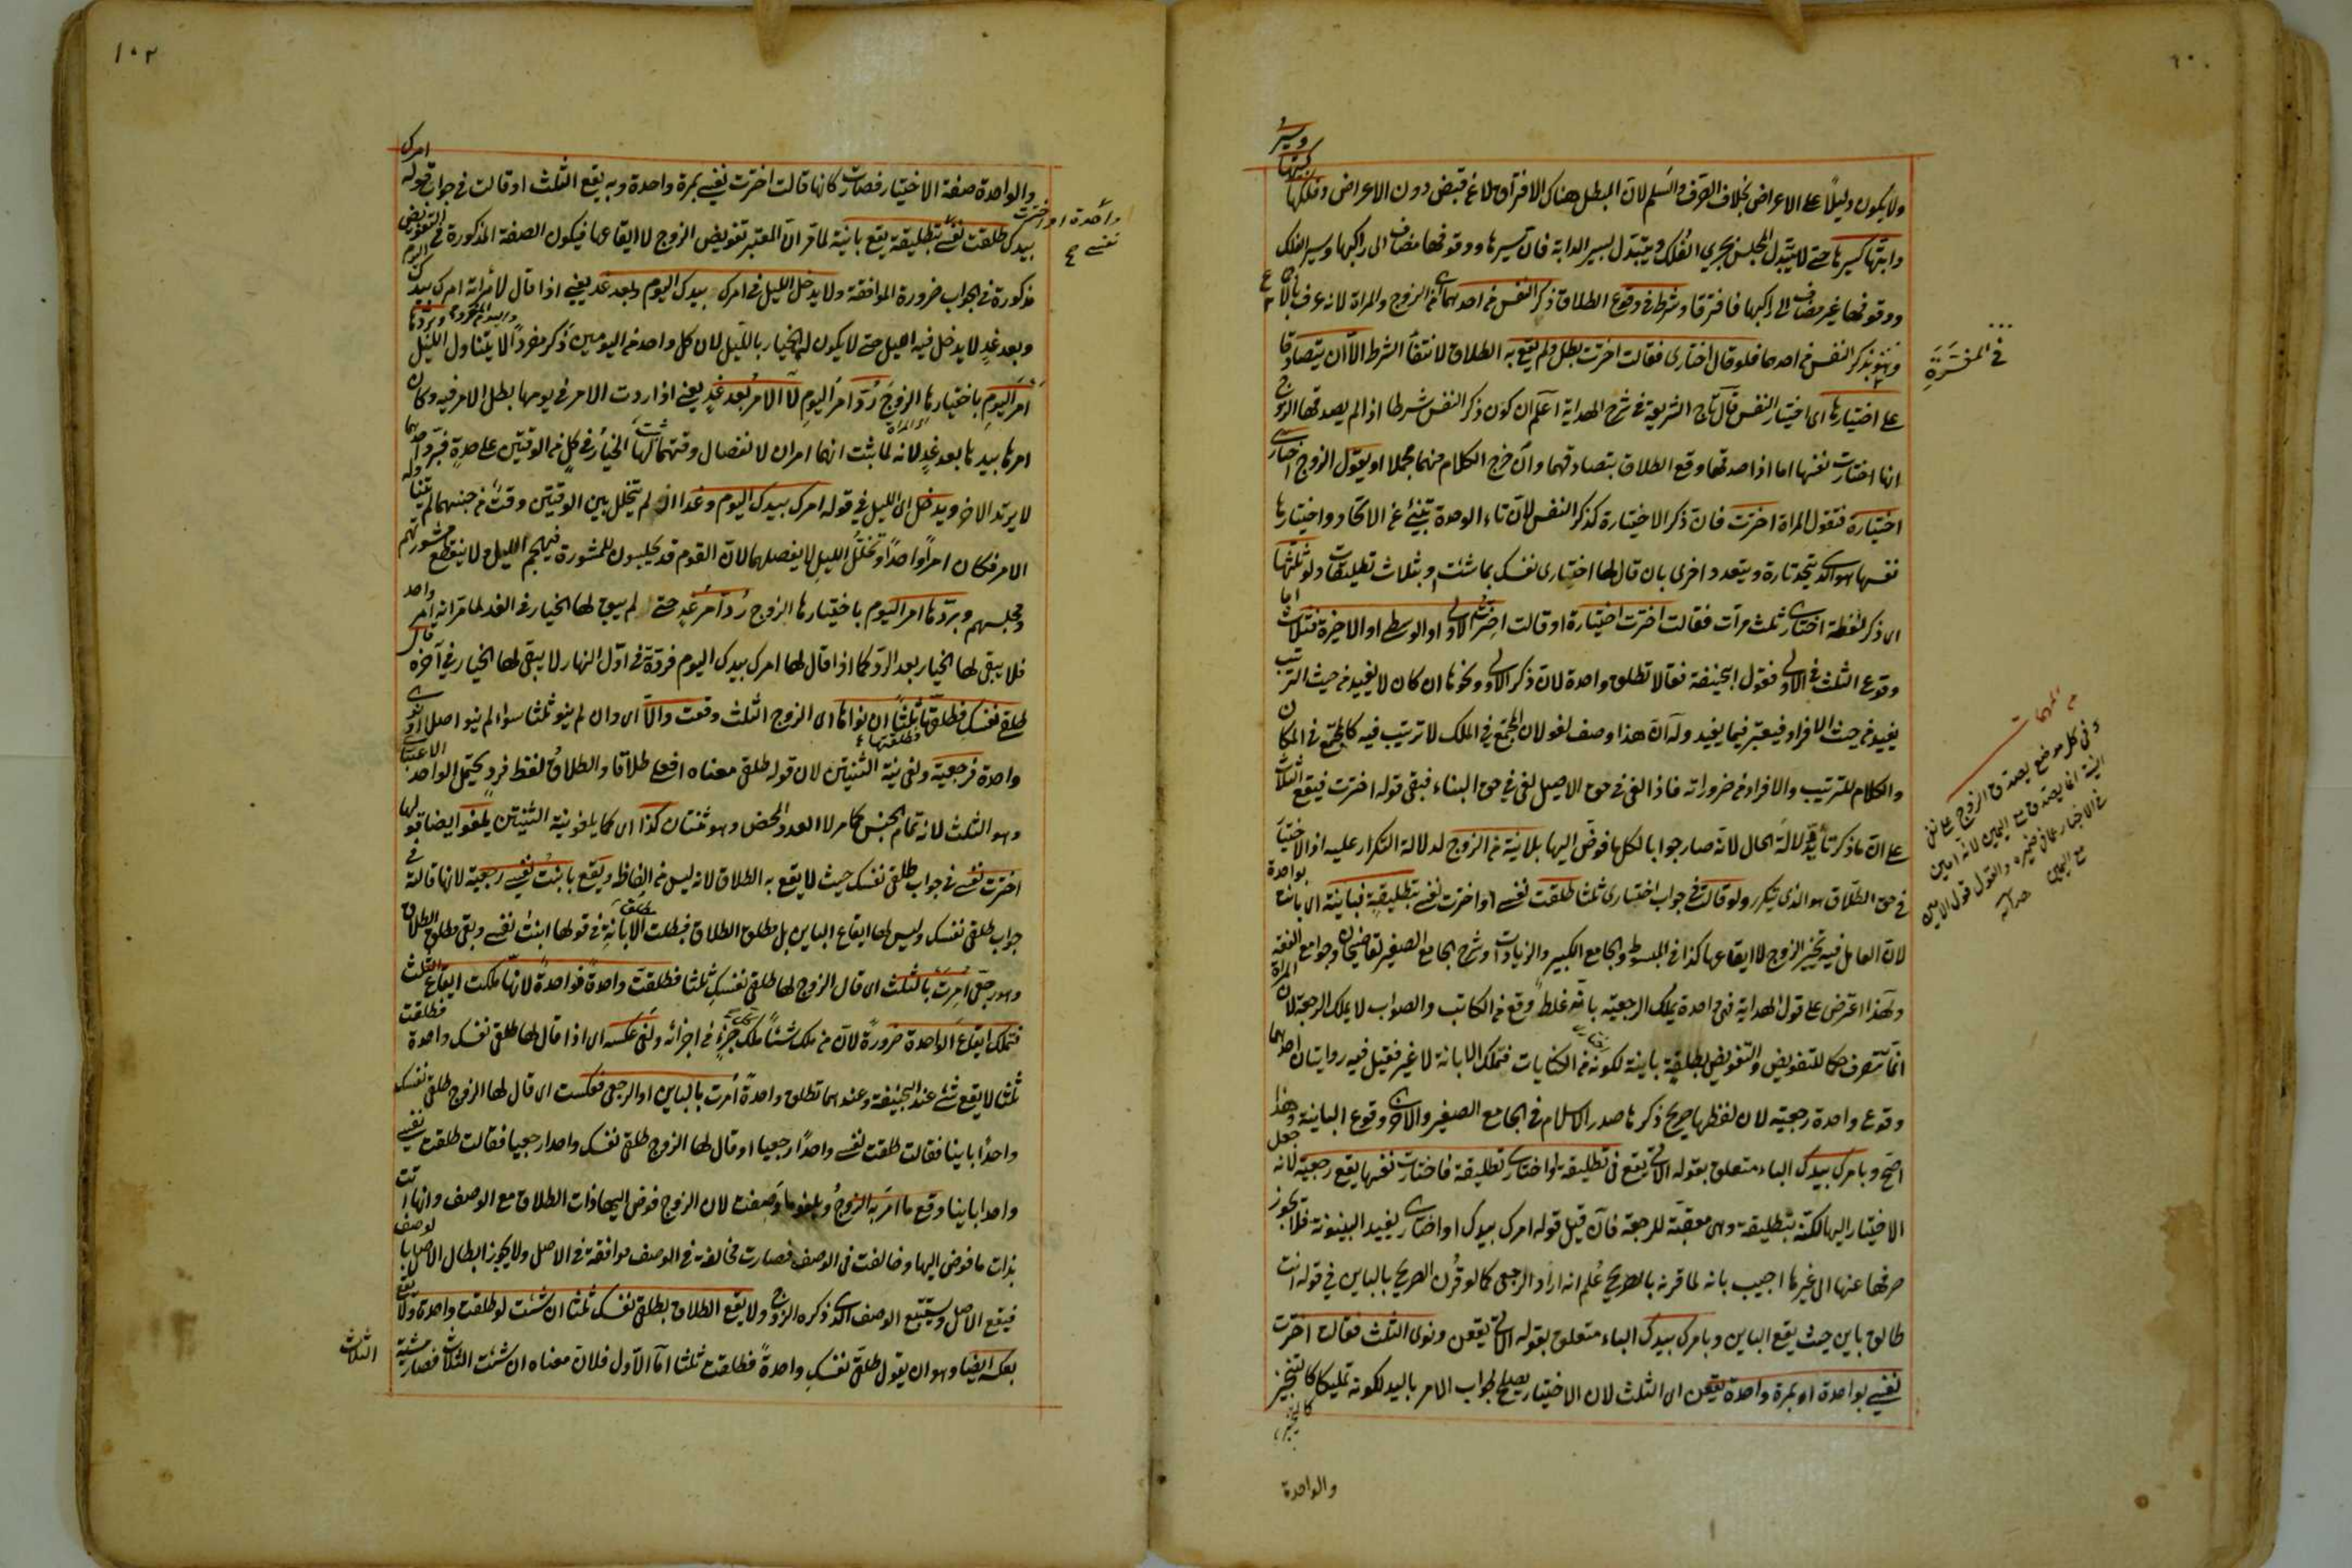 ولا يكون دليلا على الاعراض بخلاف الصرف والسلم لان المبطل هناك الافتراق لا عن قبض دون الاعراض وفلكها
دابتها كسيرها حتى لا يتبدل المجلس بجري الفلك ويتبدل بسير الدابة فان سيرها ووقوفها مضاف الى راكبها وسير الفلك
ووقوفها غير مضاف الى راكبها فافترقا وشرط في وقوع الطلاق ذكر النفس من احدهما اي من الزوج والمراة لانه عرف بالاجماع
وهو بذكر النفس من احدهما فلو قال اختاري فقالت اخترت بطل ولم يقع به الطلاق لانتفاء الشرط الا ان يتصادقا
في المفسرة
على اختيارها اي اختيار النفس قال تاج الشريعة في شرح الهداية اعلم ان كون ذكر النفس شرطا اذا لم يصدقها الزوج
انها اختارت نفسها اما اذا صدقها وقع الطلاق بتصادقهما وان خرج الكلام منهما مجملا او يقول الزوج اختاري
اختيارة فتقول المراة اخترت فان ذكر الاختيارة كذكر النفس لان تاء الوحدة تنبئ عن الاتحاد واختيارها
نفسها هو الذي يتحد تارة ويتعدد اخرى بان قال لها اختاري نفسك بما شئت او بثلاث تطليقات ولو ثلثها
اي ذكر لفظة اختاري ثلث مرات فقالت اخترت اختيارة او قالت اخترت الاولى او الوسطى او الاخيرة فثلاث اما
وقوع الثلث في الاولى فقول ابي حنيفة فقالا تطلق واحدة لان ذكر الاولى ونحوها ان كان لا يفيد من حيث الترتيب
يفيد من حيث الافراد فيعتبر فيما يفيد وله ان هذا وصف لغو لان المجتمع في الملك لا ترتيب فيه كالمجتمع في المكان
والكلام للترتيب والافراد من ضروراته فاذا لغى في حق الاصل لغى في حق البناء فبقي قوله اخترت فيقع الثلث
على ان ما ذكرتا دلالة الحال لانه صار جوابا لكل ما فوض اليها بلا نية من الزوج لدلالة التكرار عليه اذ الاختيار
في حق الطلاق هو الذي يتكرر ولو قالت في جواب اختاري ثلثا طلقت نفسي او اخترت نفسي بتطليقة فبائنة اي بانت بواحدة
لان العامل فيه تخيير الزوج لا ايقاعها كذا في المبسوط والجامع الكبير والزيادات وشرح الجامع الصغير لقاضيخان وجوامع الفقه
ولهذا اعترض على قول الهداية فهي واحدة يملك الرجعية بانه غلط وقع من الكاتب والصواب لا يملك الرجعة لان المراة
انما تتصرف حكما للتفويض والتفويض بطليقة باينة لكونه من الكنايات فتملك الابانة لا غير فقيل فيه روايتان احدهما
وقوع واحدة رجعية لان لفظها صريح ذكرها صدر الاسلام في الجامع الصغير والاخرى وقوع الباينة وهذا
اصح وبامرك بيدك الباء متعلق بقوله الاتي يقع في تطليقة او اختاري تطليقة فاختارت نفسها يقع رجعية لانه جعل
الاختيار اليها لكنه بتطليقة وهي معقبة للرجعة فان قيل قوله امرك بيدك او اختاري يفيد البينونة فلا يجوز
صرفها عنها الى غيرها اجيب بانه لما قرنه بالصريح علم انه اراد الرجعي كما لو قرن الصريح بالباين في قوله انت
طالق باين حيث يقع الباين وبامرك بيدك الباء متعلق بقوله الاتي يقعن ونوى الثلث فقالت اخترت
نفسي بواحدة او بمرة واحدة يقعن اي الثلث لان الاختيار يصلح لجواب الامر باليد لكونه تمليكا كالتخيير
والواحدة
وفي كل موضع يصدق الزوج على نفي
النية انما يصدق مع اليمين لانه امين
في الاخبار عما في ضميره والقول قول الامين
مع اليمين
١٠٢
والواحدة صفة الاختيار فصارت كانها قالت اخترت نفسي بمرة واحدة وبه يقع الثلث او قالت في جواب قوله امرك
بيدك طلقت نفسي بتطليقة يقع باينة لما مر ان المعتبر تفويض الزوج لا ايقاعها فيكون الصفة المذكورة في التفويض
واحدة او اخترت
نفسي
مذكورة في الجواب ضرورة الموافقة ولا يدخل الليل في امرك بيدك اليوم وبعد غد يعني اذا قال لامراته امرك بيدك اليوم
وبعد غد لا يدخل فيه الليل حتى لا يكون لها الخيار بالليل لان كل واحد من اليومين ذكر مفردا لا يتناول الليل وبردها
امر اليوم باختيارها الزوج رد امر اليوم لا الامر بعد غد يعني اذا ردت الامر في يومها بطل الامر فيه وكان
امرها بيدها بعد غد لانه لما ثبت انهما امران لانفصال وقتهما ثبت لها الخيار في كل من الوقتين على حدة فبرد احدهما
لا يرتد الاخر ويدخل اي الليل في قوله امرك بيدك اليوم وغدا اذ لم يتخلل بين الوقتين وقت من جنسهما لم يتناوله
الامر فكان امرا واحدا وتخلل الليل لا يفصلهما لان القوم قد يجلسون للمشورة فيهجم الليل ولا ينقطع مشورتهم
ومجلسهم وبردها امر اليوم باختيارها الزوج رد امر غد حتى لم يبق لها الخيار في الغد لما مر انه امر واحد
فلا يبقى لها الخيار بعد الرد كما اذا قال لها امرك بيدك اليوم فردته في اول النهار لا يبقى لها الخيار في آخره قال
طلقي نفسك فطلقتها ثلثا ان نواها اي الزوج الثلث وقعت والا اي وان لم ينو ثلثا سواء لم ينو اصلا او نوى
واحدة فرجعية ولغى نية الثنتين لان قوله طلقي معناه افعلي طلاقا والطلاق لفظ فرد يحتمل الواحد الاعتباري
وهو الثلث لانه تمام الجنس كما مر لا العدد المحض وهو ثنتان كذا اي كما يلغو نية الثنتين يلغو ايضا قولها
اخترت نفسي في جواب طلقي نفسك حيث لا يقع به الطلاق لانه ليس من الفاظه ويقع بابنت نفسي رجعية لانها قالته في
جواب طلقي نفسك وليس لها ايقاع الباين بل مطلق الطلاق فبطلت الابانة في قولها ابنت نفسي وبقي مطلق الطلاق
وهو رجعي امرت بالثلث اي قال الزوج لها طلقي نفسك ثلثا فطلقت واحدة فواحدة لانها ملكت ايقاع الثلث
فتملك ايقاع الواحدة ضرورة لان من ملك شيئا ملك جزء من اجزائه وفي عكسه اي اذا قال لها طلقي نفسك واحدة فطلقت
ثلثا لا يقع شئ عند ابي حنيفة وعندهما تطلق واحدة امرت بالباين او الرجعي فعكست اي قال لها الزوج طلقي نفسك
واحدا باينا فقالت طلقت نفسي واحدا رجعيا او قال لها الزوج طلقي نفسك واحدا رجعيا فقالت طلقت نفسي
واحدا باينا وقع ما امر به الزوج ويلغو ما وصفت لان الزوج فوض اليها ذات الطلاق مع الوصف وانها اتت
بذات ما فوض اليها وخالفت في الوصف فصارت مخالفة في الوصف موافقة في الاصل ولا يجوز ابطال الاصل بالوصف
فيقع الاصل ويستتبع الوصف الذي ذكره الزوج ولا يقع الطلاق بطلقي نفسك ثلثا ان شئت لو طلقت واحدة ولا يقع
بعكسه ايضا وهو ان يقول طلقي نفسك واحدة فطلقت ثلثا اما الاول فلان معناه ان شئت الثلاث فصار مشية
الثلاث